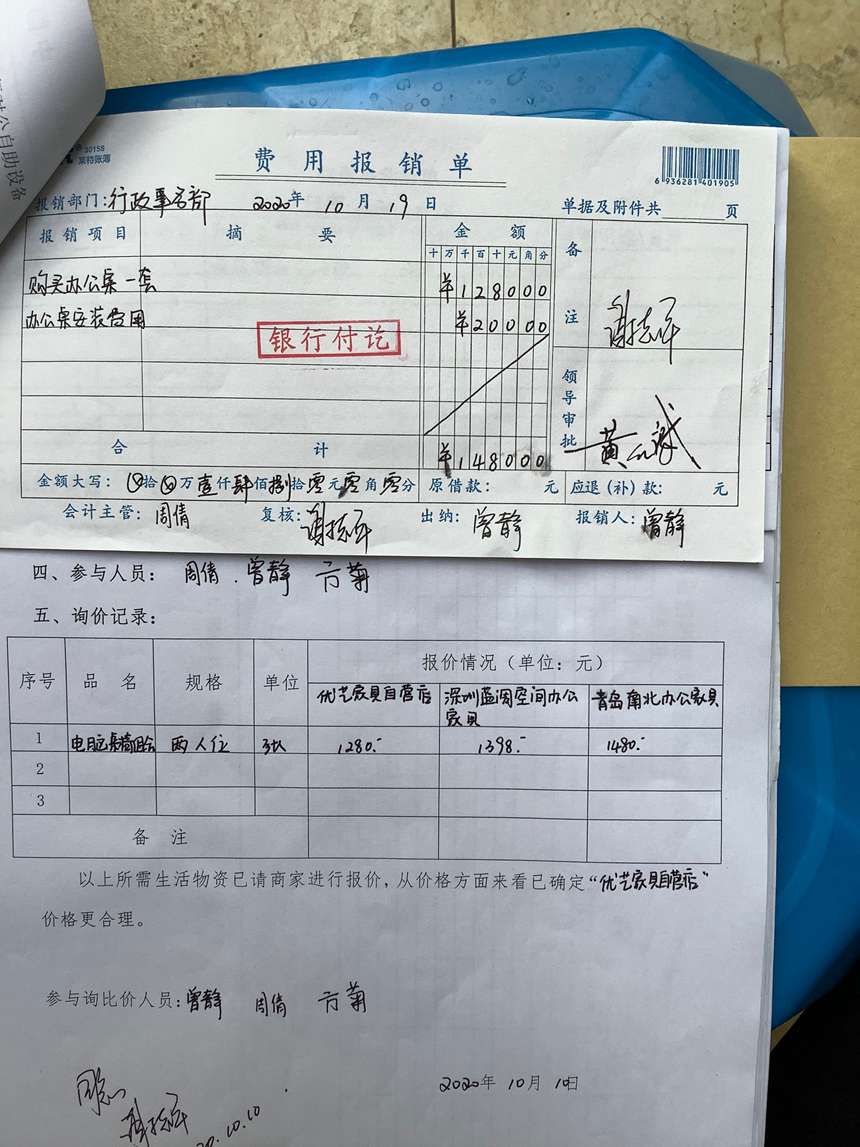 对公自助设备
30158
莱特账薄
费用报销单
6 936281 401905
报销部门:行政事务部 2020年 10月 19日 单据及附件共 页
报销项目 摘要 金额 备注
十万千百十元角分
购买办公桌一套 ¥128000
办公桌安装费用 ¥20000
银行付讫
领导审批
合计 ¥148000
金额大写: 拾 万壹仟肆佰捌拾零元零角零分 原借款: 元 应退(补)款: 元
会计主管:周倩 复核: 出纳:曾静 报销人:曾静
四、参与人员: 周倩 . 曾静 方菊
五、询价记录:
序号 品名 规格 单位 报价情况(单位:元)
优艺家具自营店 深圳蓝调空间办公家具 青岛南北办公家具
1 电脑桌椅组合 两人位 1280.- 1398.- 1480.-
2
3
备注
以上所需生活物资已请商家进行报价,从价格方面来看已确定“优艺家具自营店”
价格更合理。
参与询比价人员:曾静 周倩 方菊
2020年 10月 10日
同意
20.10.10